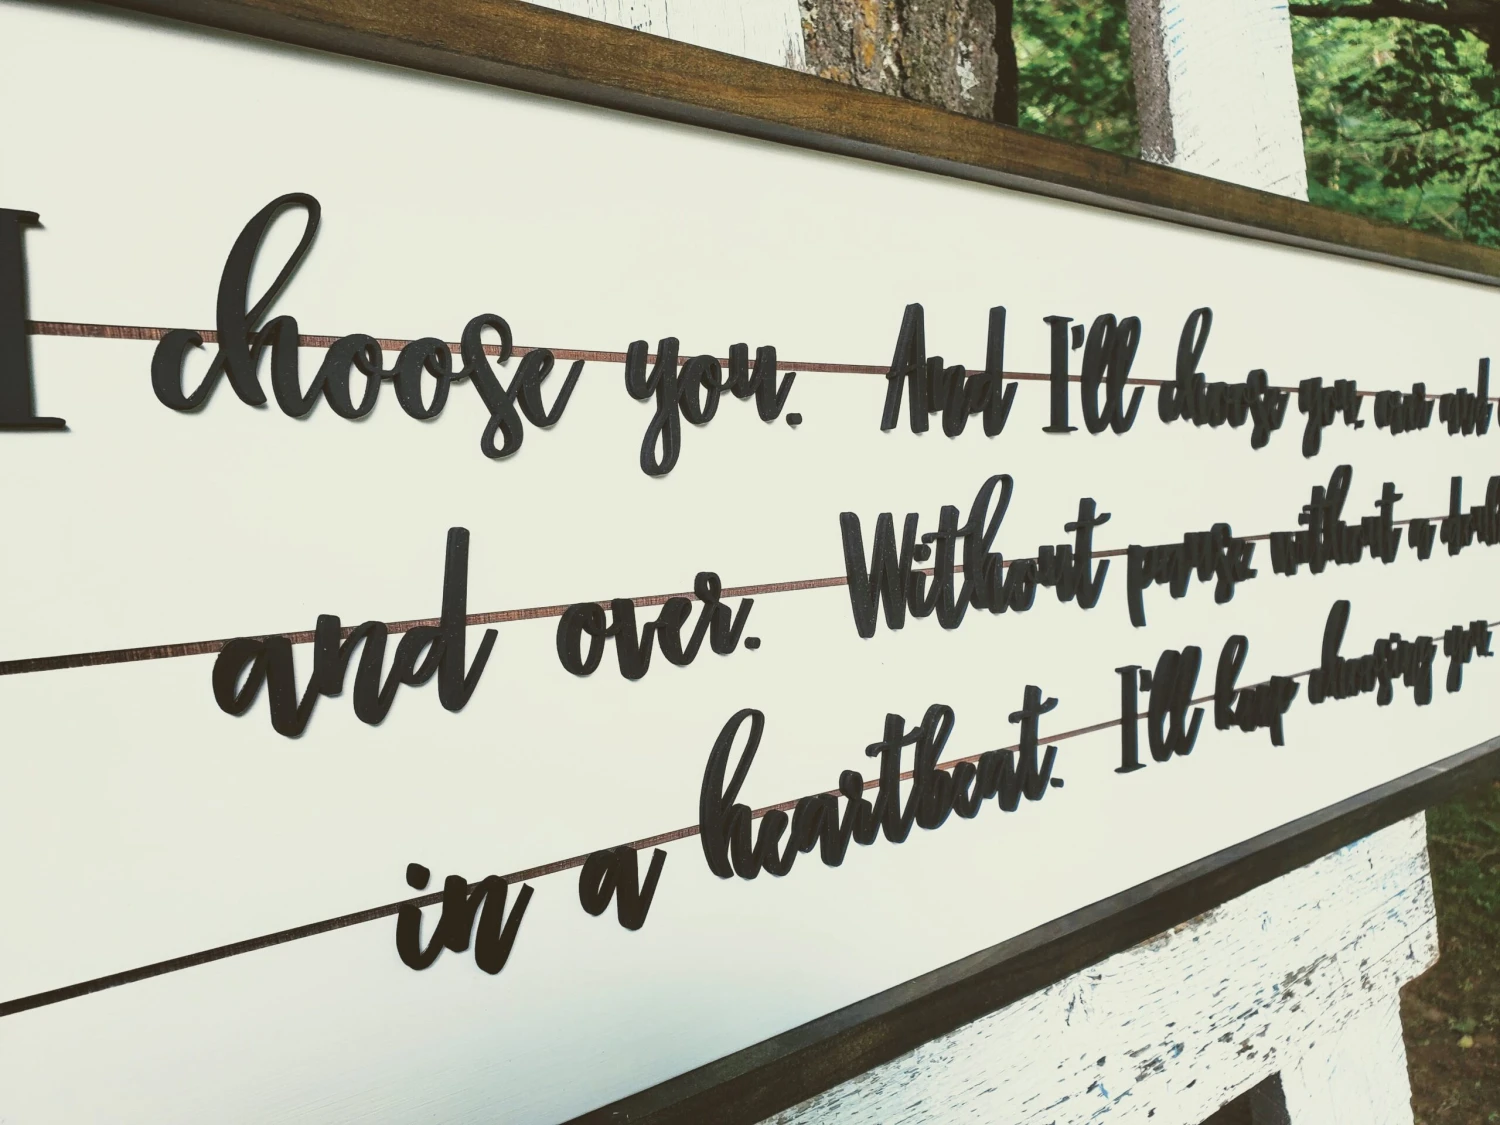 I choose you. And I'll choose you. over and
and over. Without pause, without a doubt
in a heartbeat. I'll keep choosing you.